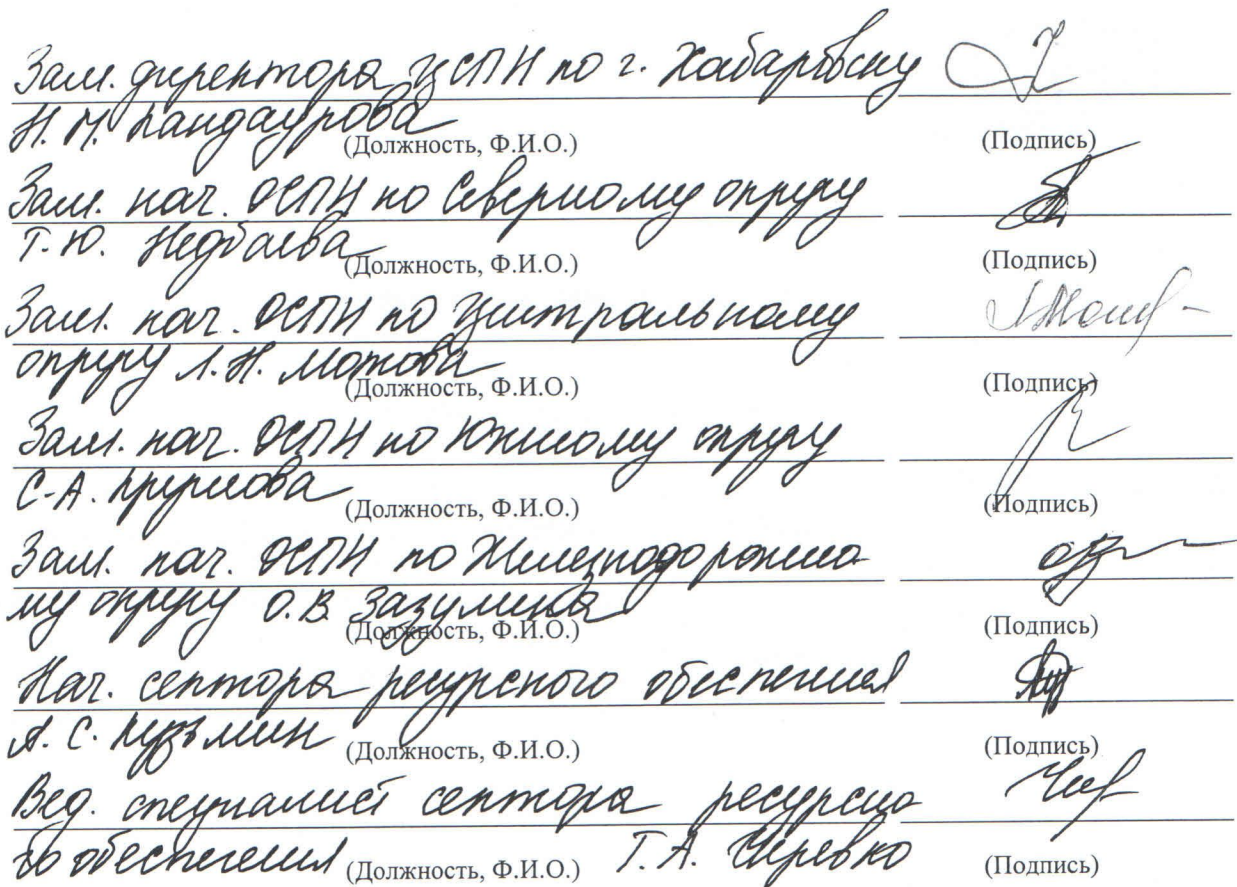 Зам. директора ЦСПН по г. Хабаровску
Н. М. Кандаурова
(Должность, Ф.И.О.) (Подпись)
Зам. нач. ОСПН по Северному округу
Т. Ю. Недбаева
(Должность, Ф.И.О.) (Подпись)
Зам. нач. ОСПН по Центральному
округу Л. Н. Мохова
(Должность, Ф.И.О.) (Подпись)
Зам. нач. ОСПН по Южному округу
С. А. Круглова
(Должность, Ф.И.О.) (Подпись)
Зам. нач. ОСПН по Железнодорожно-
му округу О. В. Зазулина
(Должность, Ф.И.О.) (Подпись)
Нач. сектора ресурсного обеспечения
А. С. Кузьмин
(Должность, Ф.И.О.) (Подпись)
Вед. специалист сектора ресурсно
го обеспечения Т. А. Черевко
(Должность, Ф.И.О.) (Подпись)